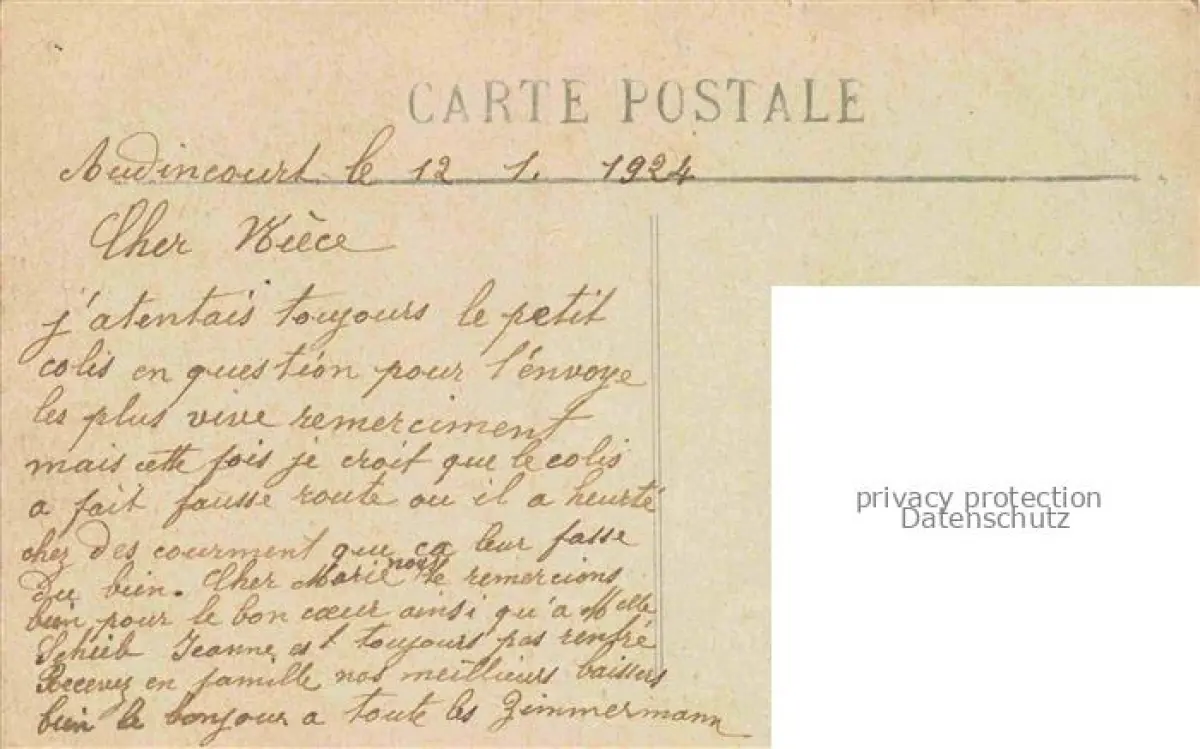 CARTE POSTALE
Audincourt le 12 1. 1924
Cher Nièce
j'atentais toujours le petit
colis en question pour l'énvoye
les plus vive remerciment
mais cette fois je croit que le colis
a fait fausse route ou il a heurté
chez des courment que ça leur fasse
du bien. Cher Marie nous te remercions
bien pour le bon cœur ainsi qu'a Melle
Scheib Jeanne est toujours pas rentré
Recevez en famille nos meillieurs baissers
bien le bonjour a toute les Zimmermann
privacy protection
Datenschutz